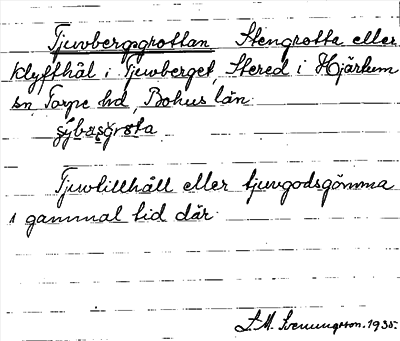 Tjuvbergsgrottan Stengrotta eller
klyfthål i Tjuvberget, Stered i Hjärtum
sn, Torpe hd, Bohus län.
Tjuvtillhåll eller tjuvgodsgömma
i gammal tid där.
L. M. Svenungsson. 1935.